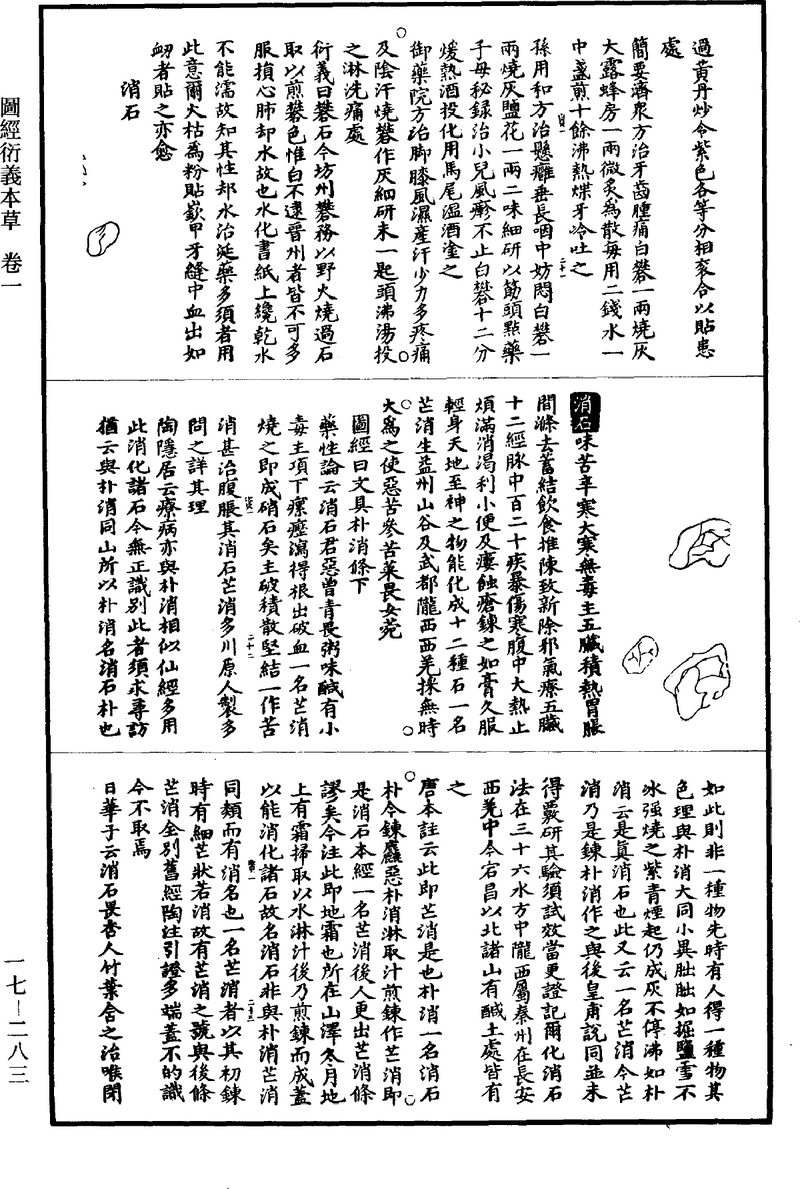 圖經衍義本草　卷一
過黃丹炒令紫色各等分相衮合以貼患
處
簡要濟衆方治牙齒腫痛白礬一兩燒灰
大露蜂房一兩微炙爲散每用二錢水一
中盞煎十餘沸熱煠牙冷吐之
孫用和方治懸癰垂長咽中妨悶白礬一
兩燒灰鹽花一兩二味細研以筯頭點藥
子母秘録治小兒風瘮不止白礬十二分
煖熱酒投化用馬尾溫酒塗之
御藥院方治脚膝風濕產汗少力多疼痛
及陰汗燒礬作灰細研末一匙頭沸湯投
之淋洗痛處
衍義曰礬石今坊州礬務以野火燒過石
取以煎礬色惟白不逮晉州者皆不可多
服損心肺却水故也水化書紙上纔乾水
不能濡故知其性却水治涎藥多須者用
此意爾火枯為粉貼嵌甲牙縫中血出如
衂者貼之亦愈
消石
消石味苦辛寒大寒無毒主五臟積熱胃脹
閒滌去蓄結飲食推陳致新除邪氣療五臟
十二經脉中百二十疾暴傷寒腹中大熱止
煩滿消渴利小便及瘻蝕瘡鍊之如膏久服
輕身天地至神之物能化成十二種石一名
芒消生益州山谷及武都隴西西羌採無時
火爲之使惡苦參苦菜畏女菀
圖經曰文具朴消條下
藥性論云消石君惡曾青畏粥味醎有小
毒主項下瘰癧瀉得根出破血一名芒消
燒之即成硝石矣主破積散堅結一作苦
消甚治腹脹其消石芒消多川原人製多
問之詳其理
陶隱居云療病亦與朴消相似仙經多用
此消化諸石今無正識別此者須求尋訪
猶云與朴消同山所以朴消名消石朴也
如此則非一種物先時有人得一種物其
色理與朴消大同小異朏朏如握鹽雪不
冰强燒之紫青煙起仍成灰不停沸如朴
消云是眞消石也此又云一名芒消今芒
消乃是鍊朴消作之與後皇甫說同並未
得覈研其驗須試效當更證記爾化消石
法在三十六水方中隴西屬秦州在長安
西羌中今宕昌以北諸山有鹹土處皆有
之
唐本註云此即芒消是也朴消一名消石
朴今鍊麤惡朴消淋取汁煎鍊作芒消即
是消石本經一名芒消後人更出芒消條
謬矣今注此即地霜也所在山澤冬月地
上有霜掃取以水淋汁後乃煎鍊而成蓋
以能消化諸石故名消石非與朴消芒消
同類而有消名也一名芒消者以其初鍊
時有細芒狀若消故有芒消之號與後條
芒消全別舊經陶注引證多端蓋不的識
今不取焉
日華子云消石畏杏人竹葉含之治喉閉
一七—二八三